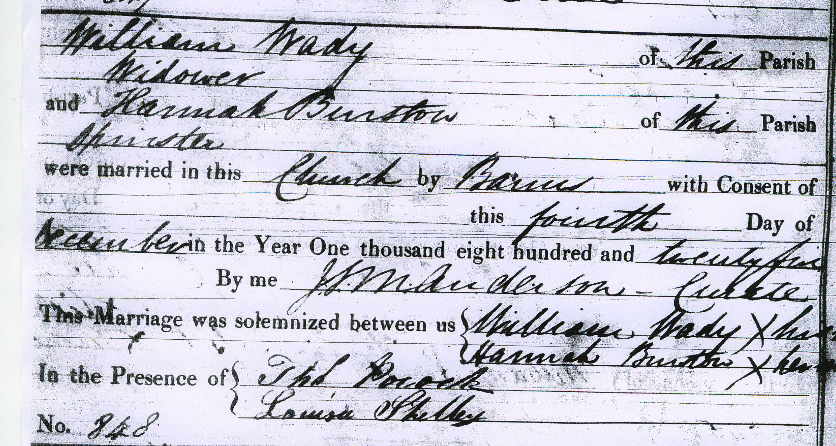 William Wady of this Parish
Widower
and Hannah Burstow of this Parish
Spinster
were married in this Church by Banns with Consent of
this fourth Day of
December in the Year One thousand eight hundred and twenty five
By me Anderson - Curate
This Marriage was solemnized between us William Wady X his
Hannah Burstow X her
In the Presence of Thos Pocock
Louisa Shelley
No. 348